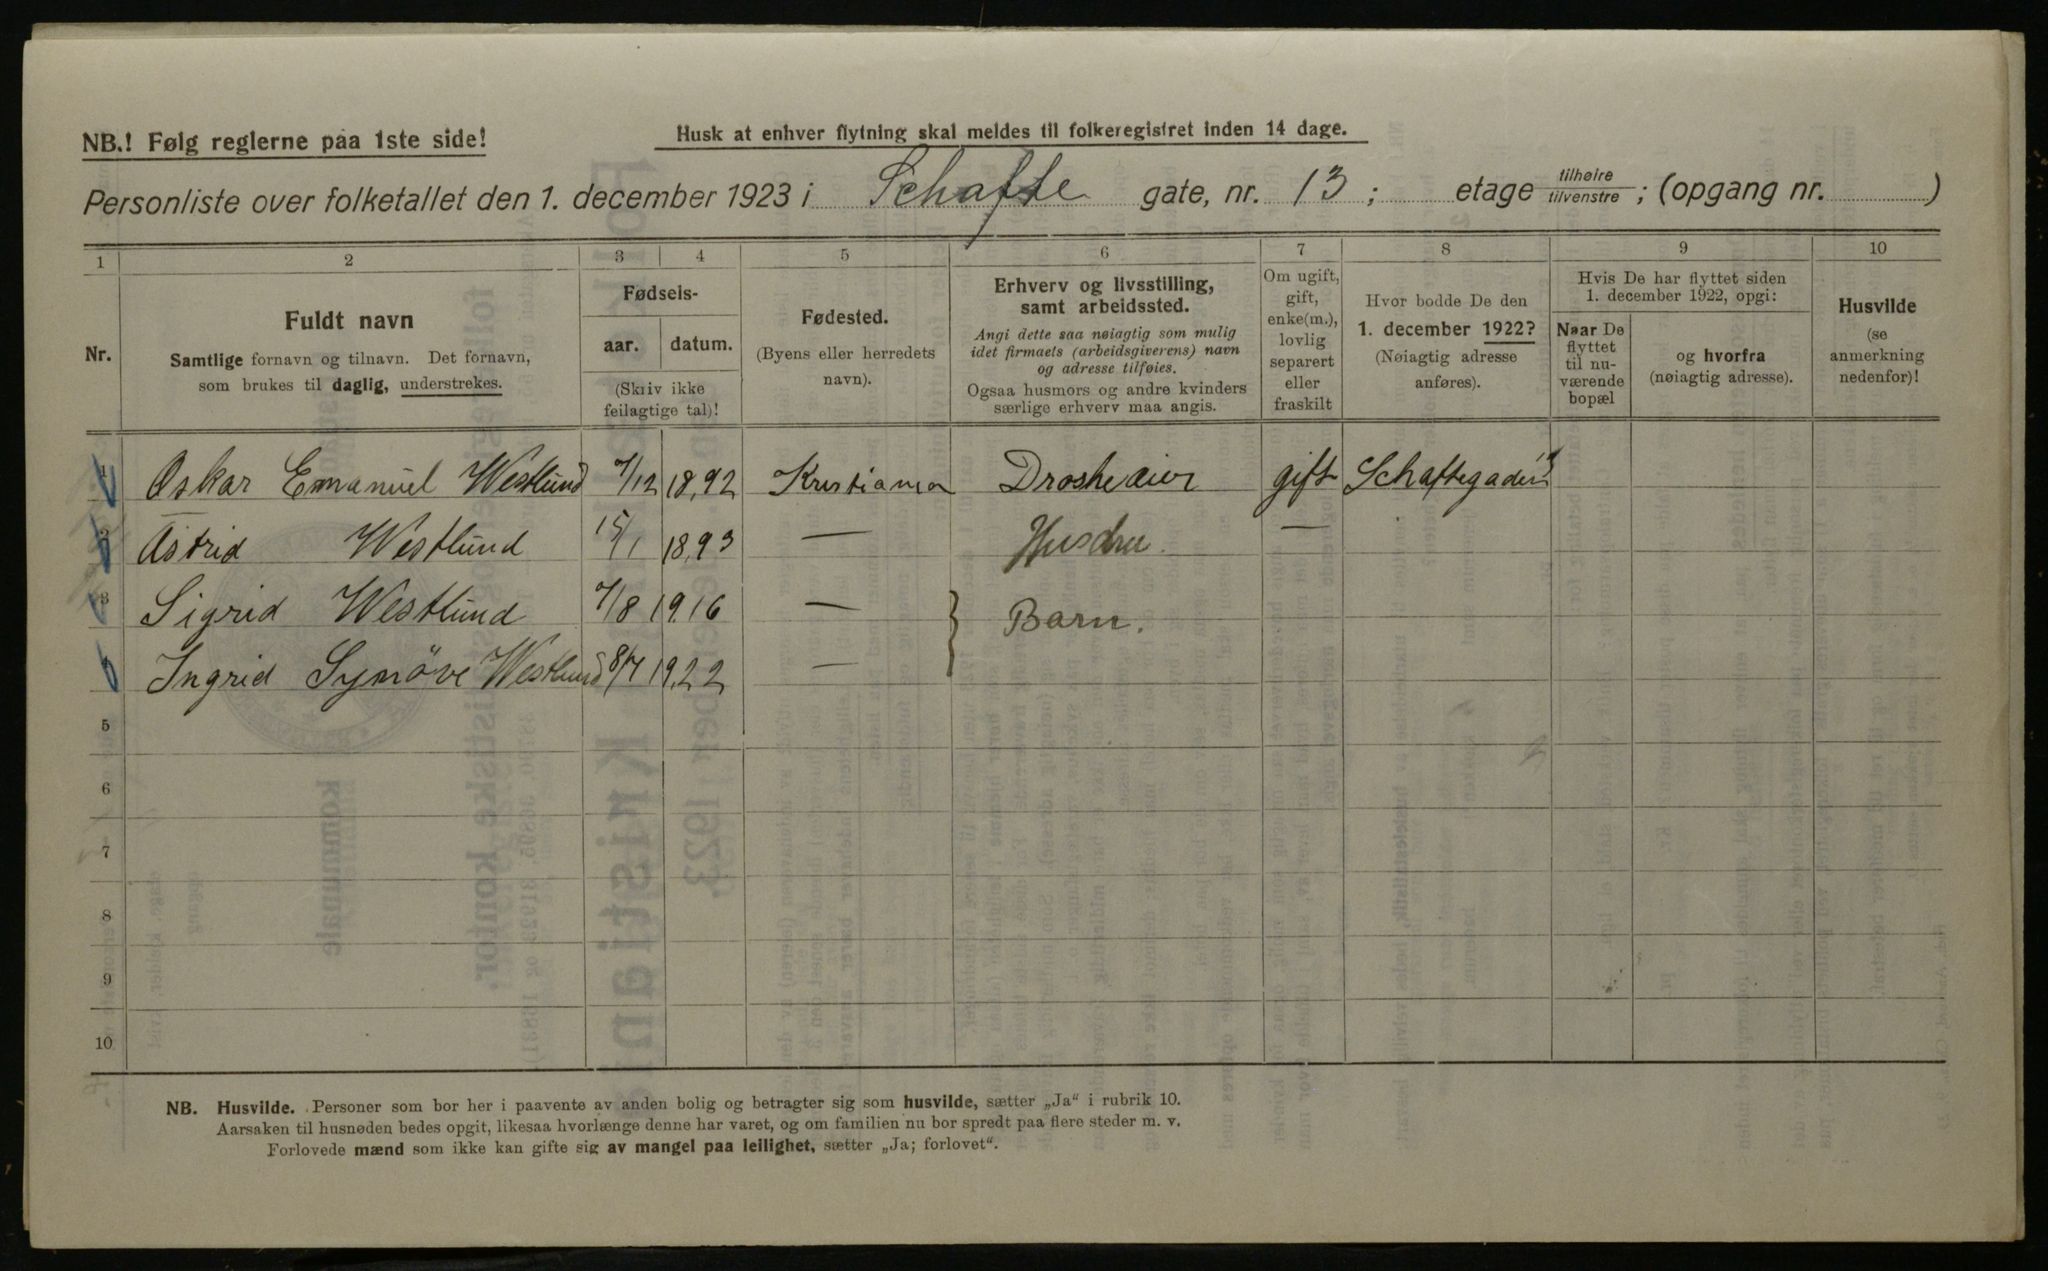 NB.! Følg reglerne paa 1ste side!
Husk at enhver flytning skal meldes til folkeregistret inden 14 dage.
Personliste over folketallet den 1. december 1923 i Schafte gate, nr. 13; etage tilhøire tilvenstre; (opgang nr. )
1 2 3 4 5 6 7 8 9 10
Nr.
Fuldt navn
Samtlige fornavn og tilnavn. Det fornavn,
som brukes til daglig, understrekes.
Fødsels-
aar. datum.
(Skriv ikke
feilagtige tal)!
Fødested.
(Byens eller herredets
navn).
Erhverv og livsstilling,
samt arbeidssted.
Angi dette saa nøiagtig som mulig
idet firmaets (arbeidsgiverens) navn
og adresse tilføies.
Ogsaa husmors og andre kvinders
særlige erhverv maa angis.
Om ugift,
gift,
enke(m.),
lovlig
separert
eller
fraskilt
Hvor bodde De den
1. december 1922?
(Nøiagtig adresse
anføres).
Hvis De har flyttet siden
1. december 1922, opgi:
Naar De
flyttet
til nu-
værende
bopæl
og hvorfra
(nøiagtig adresse).
Husvilde
(se
anmerkning
nedenfor)!
1 Oskar Emanuel Westlund 7/12 1892 Kristiania Drosheeier gift Schaftegaden 13
2 Astrid Westlund 15/1 1893 — Husfru. —
3 Sigrid Westlund 7/8 1916 — } Barn.
4 Ingrid Synöve Westlund 8/7 1922 —
5
6
7
8
9
10
NB. Husvilde. Personer som bor her i paavente av anden bolig og betragter sig som husvilde, sætter „Ja“ i rubrik 10.
Aarsaken til husnøden bedes opgit, likesaa hvorlænge denne har varet, og om familien nu bor spredt paa flere steder m. v.
Forlovede mænd som ikke kan gifte sig av mangel paa leilighet, sætter „Ja; forlovet“.